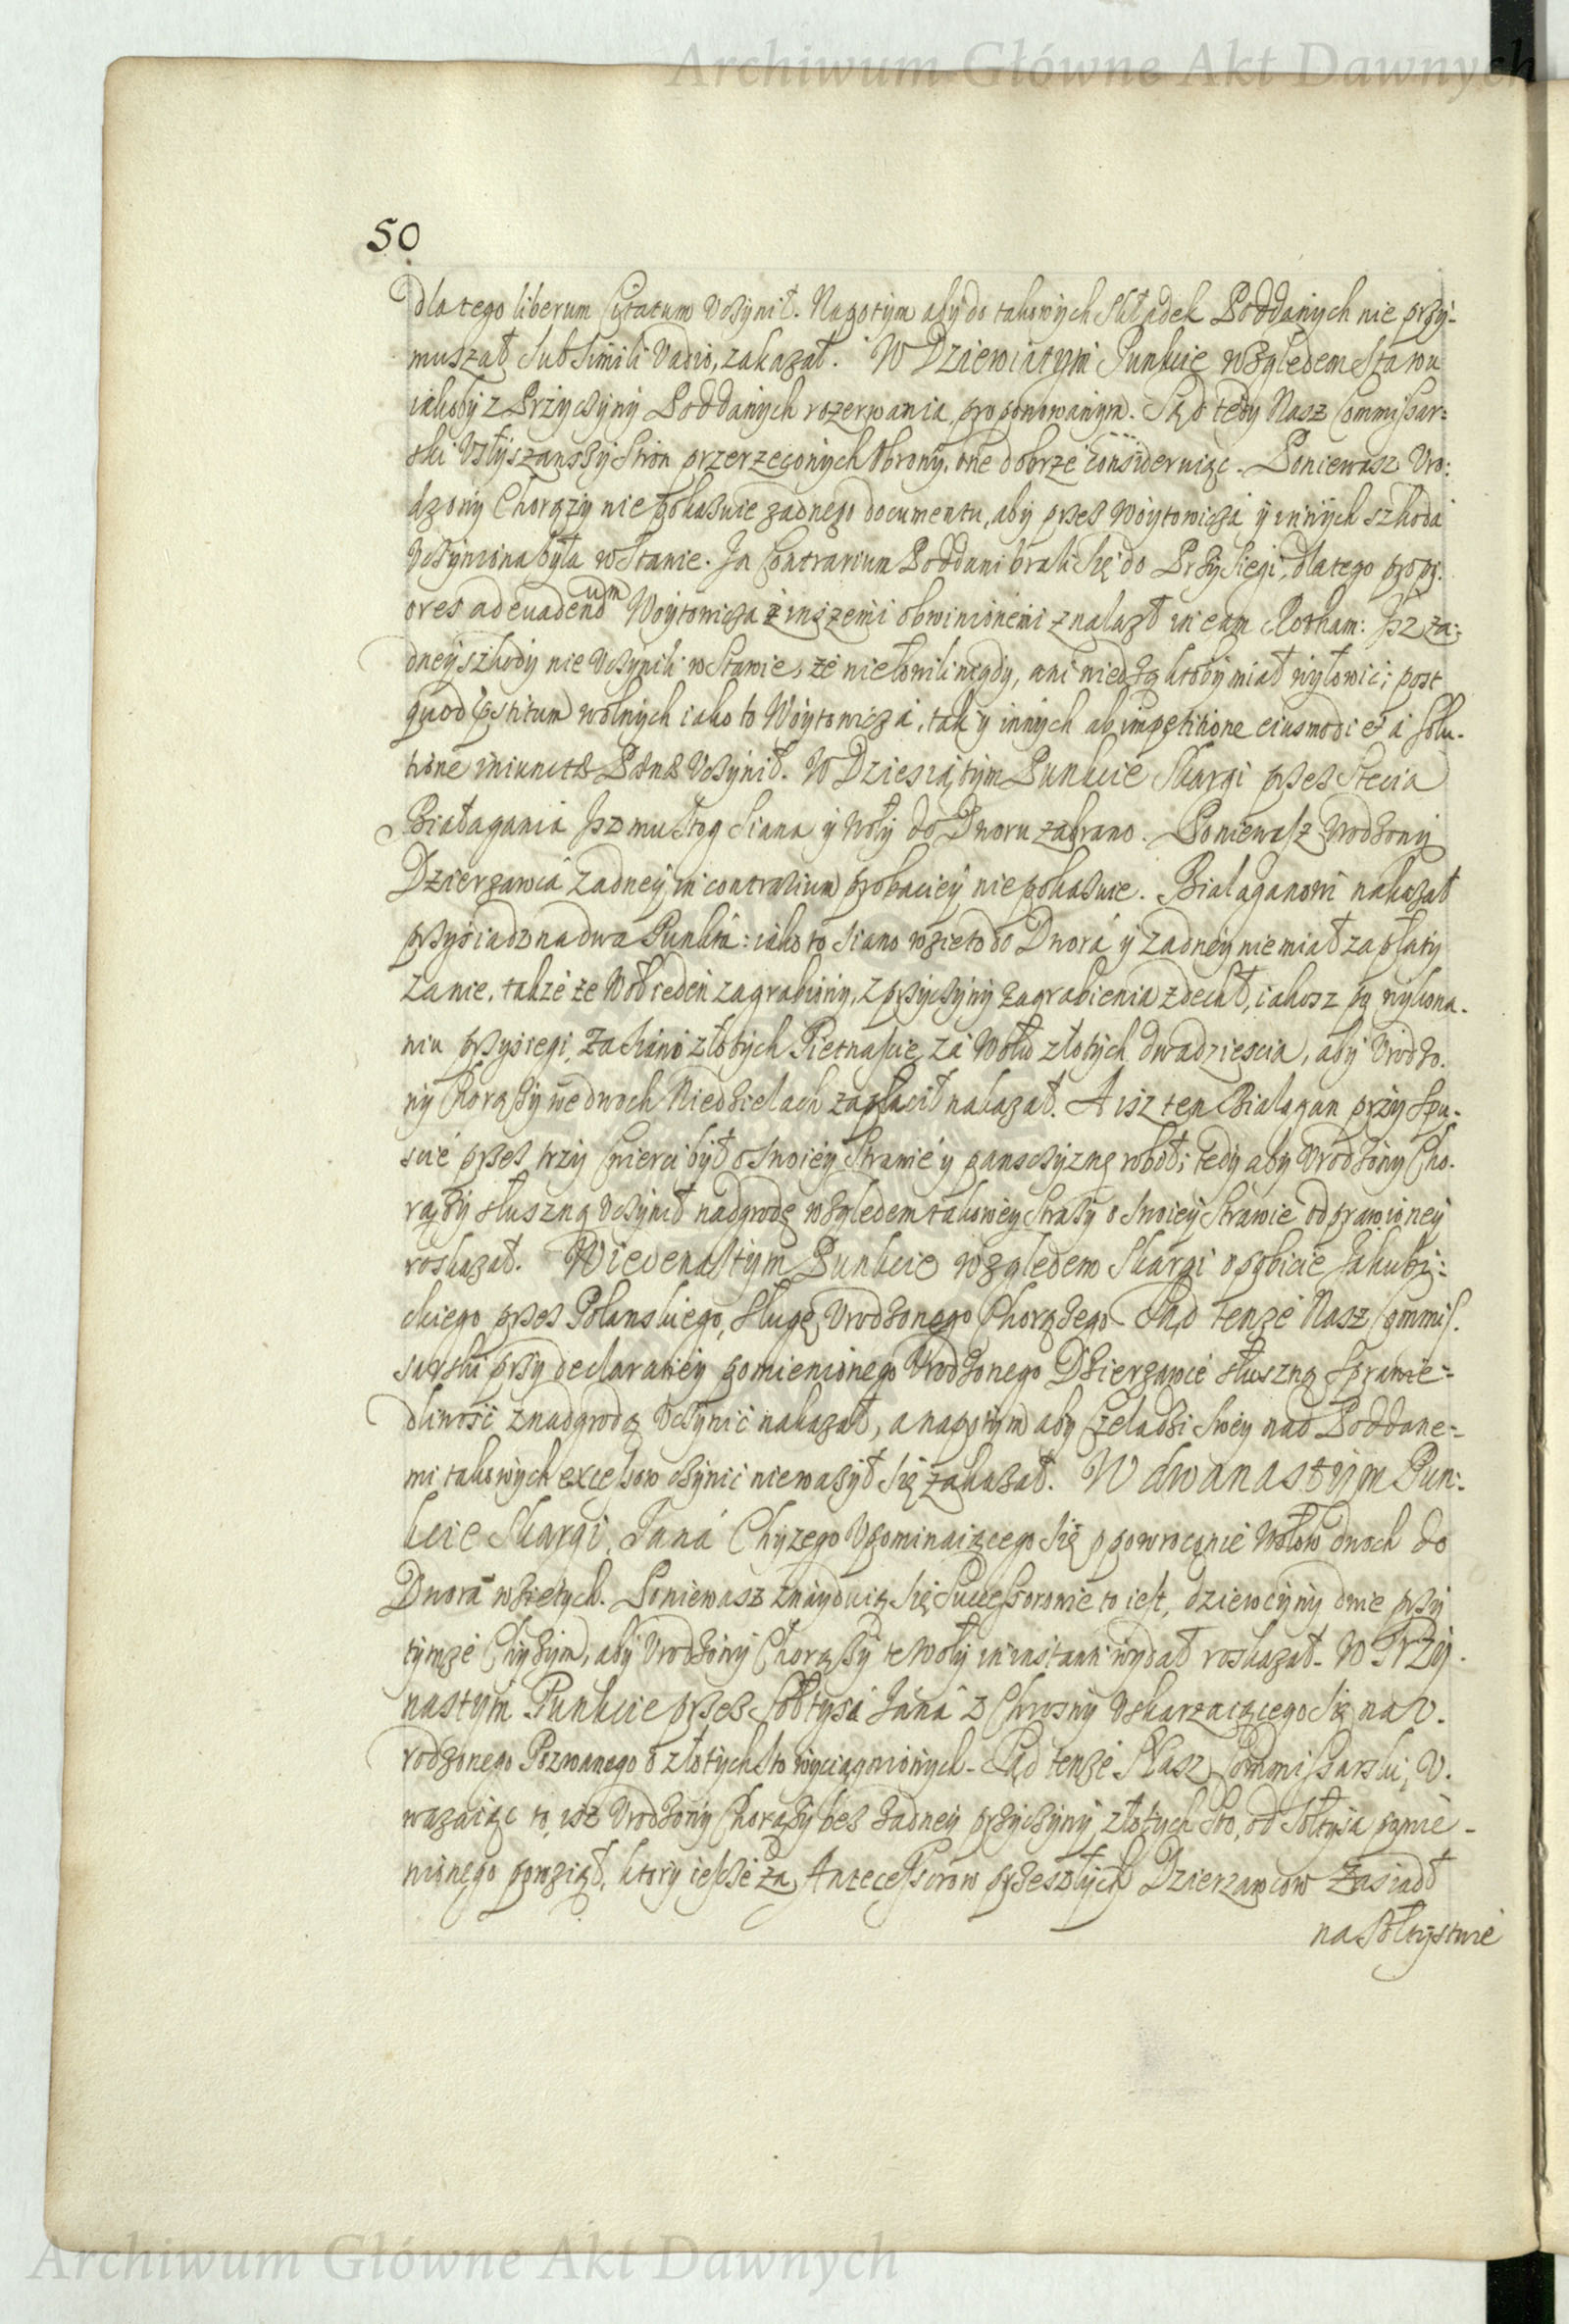 Archiwum Główne Akt Dawnych
50
dlatego liberum Citatum vczynił. Napotym aby do takowych składek Poddanych nie przy-
muszał sub simili vadio, zakazał. W Dziewiątym Punkcie względem Stawu
iakoby z Przyczyny Poddanych rozerwania proponowanym. Sąd tedy Nasz Commissar-
ski vsłyszawszy stron przerzeczonych obrony, one dobrze considerując. Poniewasz Vro-
dzony Chorązy nie pokazuie zadnego documentu, aby przez Woytowicza y innych szkoda
vczyniona była w Stawie. In Contrarium Poddani brali się do Przysięgi, dlatego propi-
ores ad evadendum Woytowicza z inszemi obwinionemi znalazł in eam Rotham: Isz za-
dney szkody nie vczynili w Stawie, że nie łowili nigdy, ani wiedzą ktoby miał wyłowić; post
quod pstitum wolnych iako to Woytowicza, tak y innych ab impetitione eiusmodi et a solu-
tione iniunctæ Pænæ vczynił. W Dziesiątym Punkcie Skargi przez Stecia
Białagania Isz mu stog siana y woły do Dworu zabrano. Poniewasz Vrodzony
Dzierzawca zadney in contrarium probaciey nie pokazuie. Białaganowi nakazał
przysiądz na dwa Punkta: iako to siano wzięto do Dwora y zadney nie miał zapłaty
za nie, także że woł ieden zagrabiony, z przyczyny zagrabienia zdechł, iakosz po wykona-
niu przysięgi, za siano złotych Piętnaście, za wołu złotych dwadzieścia, aby Vrodzo-
ny Chorązy we dwoch Niedzielach zapłacił nakazał. A isz ten Białagan przy spu-
scie przez trzy cwierci był o swoiey strawie y panszczyznę robił; tedy aby Vrodzony Cho-
rązy słuszną vczynił nadgrodę względem takowey strazy o swoiey strawie odprawioney
roskazał. W iedenastym Punkcie względem Skargi o pobicie Jakubi-
ckiego przez Polanskiego, sługę Vrodzonego Chorązego Sąd tenże Nasz Commis-
sarski przy declaratiey pomienionego Vrodzonego Dzierzawcie słuszną sprawie-
dliwość z nadgrodą vczynić nakazał, a napotym aby czeladzi swey nad Poddane-
mi takowych excessow czynić nie wazył się zakazał. W dwanastym Pun-
kcie Skargi, Jana Chyzego vpominaiącego się o powrocenie wołow dwoch do
Dwora wziętych. Poniewasz znayduią się Successorowie to iest, dziewczyny dwie przy
tymże Chyzym, aby Vrodzony Chorązy te woły in instanti wydał roskazał. W Trzy-
nastym Punkcie przez Sołtysa Jana z Chrosny vskarzaiącego się na V-
rodzonego Pozwanego o złotych sto wyciągnionych. Sąd tenże Nasz Commissarski, V-
wazaiąc to, isz Vrodzony Chorązy bez zadney przyczyny, złotych sto, od Sołtysa pomie-
nionego powziął, ktory ieszcze za Antecessorow przeszłych Dzierzawcow zasiadł
na Sołtystwie
Archiwum Główne Akt Dawnych